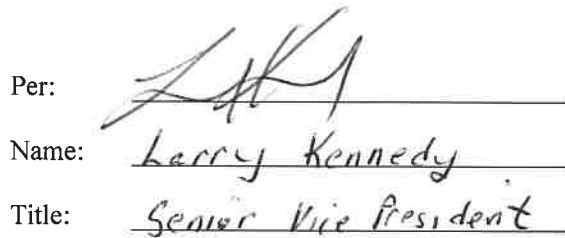 Per:
Name: Larry Kennedy
Title: Senior Vice President